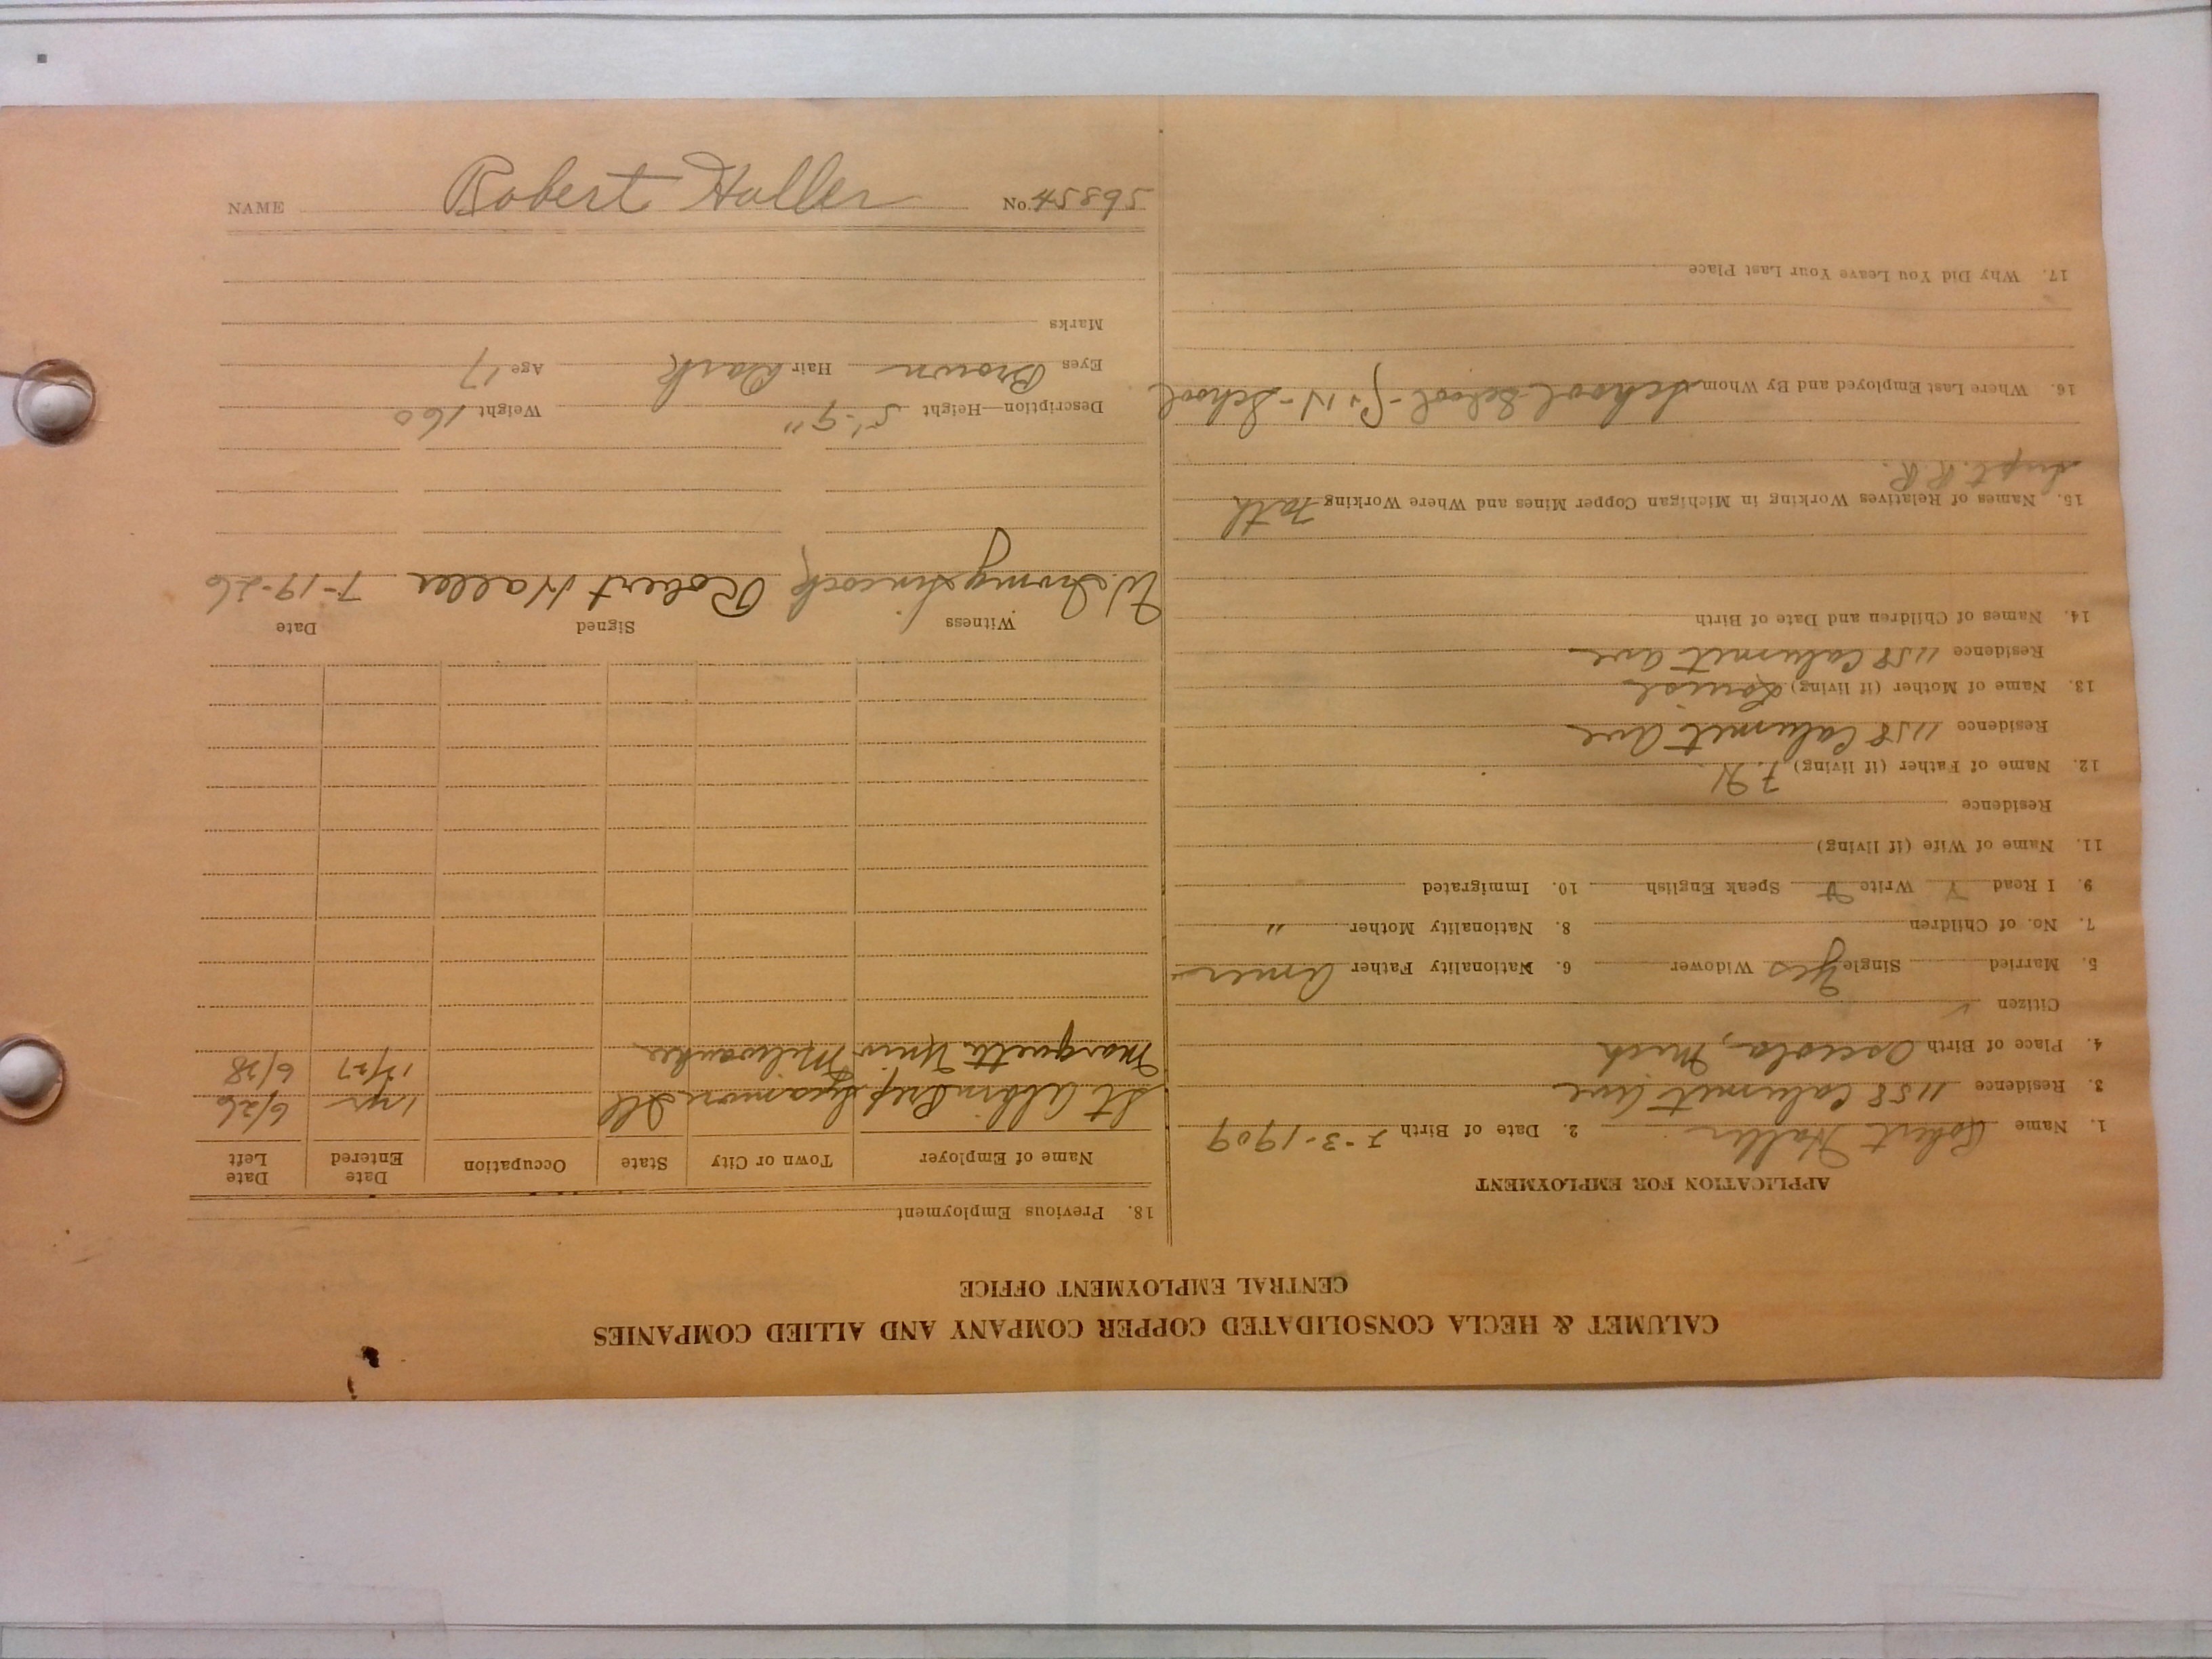 CALUMET & HECLA CONSOLIDATED COPPER COMPANY AND ALLIED COMPANIES
CENTRAL EMPLOYMENT OFFICE
APPLICATION FOR EMPLOYMENT
1. Name Robert Haller 2. Date of Birth 7-3-1909
3. Residence 1158 Calumet Ave
4. Place of Birth Osceola, Mich
Citizen ✓
5. Married Single Yes Widower 6. Nationality Father Amer
7. No. of Children 8. Nationality Mother "
9. I Read Y Write Y Speak English 10. Immigrated
11. Name of Wife (if living)
Residence
12. Name of Father (if living) F. H.
Residence 1158 Calumet Ave
13. Name of Mother (if living) Louise
Residence 1158 Calumet Ave
14. Names of Children and Date of Birth
15. Names of Relatives Working in Michigan Copper Mines and Where Working Fath
Supt. R.R.
16. Where Last Employed and By Whom School - School - School
17. Why Did You Leave Your Last Place
18. Previous Employment
Name of Employer Town or City State Occupation Date Entered Date Left
St Albin Prep Sycamore Ill 1 yr 6/26
Marquette Univ Milwaukee 6/28
Witness Signed Date
W. Irving Robert Haller 7-19-26
Description—Height 5'-9" Weight 160
Eyes Brown Hair Dark Age 17
Marks
NAME Robert Haller No. 45895